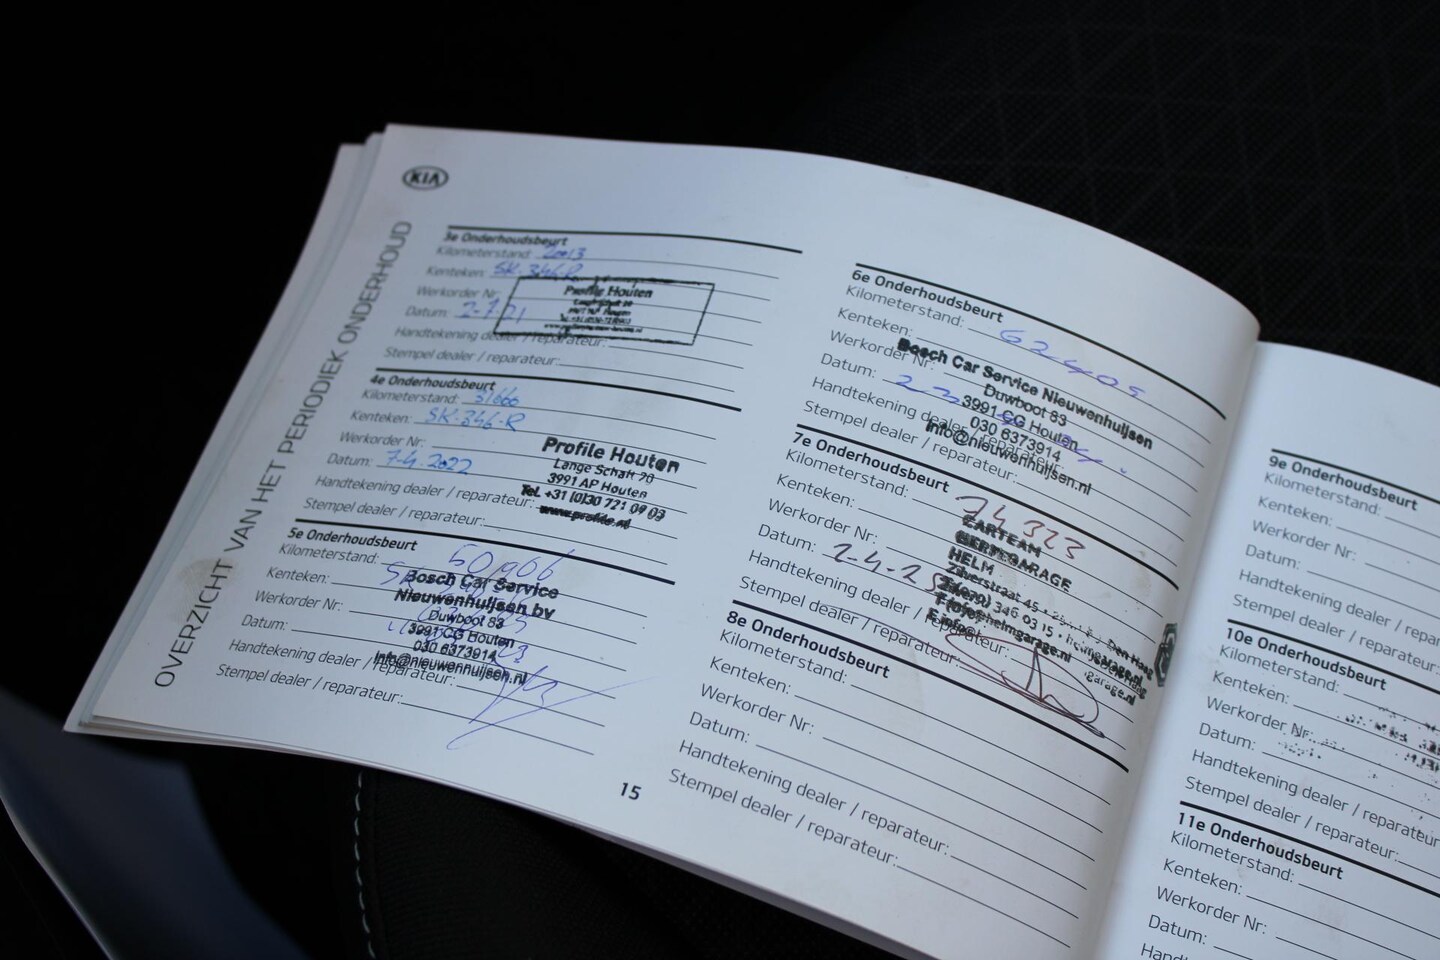 KIA
OVERZICHT VAN HET PERIODIEK ONDERHOUD
3e Onderhoudsbeurt
Kilometerstand:
Kenteken: SK-346-R
Werkorder Nr:
Datum: 2-7-21
Handtekening dealer / reparateur:
Stempel dealer / reparateur:
Profile Houten
4e Onderhoudsbeurt
Kilometerstand:
Kenteken: SK-346-R
Werkorder Nr:
Datum: 7-4-2022
Handtekening dealer / reparateur:
Stempel dealer / reparateur:
Profile Houten
Lange Schaft 20
3991 AP Houten
Tel. +31 (0)30 721 09 03
www.profile.nl
5e Onderhoudsbeurt
Kilometerstand: 50906
Kenteken:
Werkorder Nr:
Datum:
Handtekening dealer / reparateur:
Stempel dealer / reparateur:
Bosch Car Service
Nieuwenhuijsen bv
Duwboot 83
3991 CG Houten
030 6373914
info@nieuwenhuijsen.nl
15
6e Onderhoudsbeurt
Kilometerstand: 62409
Kenteken:
Werkorder Nr:
Datum:
Handtekening dealer / reparateur:
Stempel dealer / reparateur:
Bosch Car Service Nieuwenhuijsen
Duwboot 83
3991 CG Houten
030 6373914
info@nieuwenhuijsen.nl
7e Onderhoudsbeurt
Kilometerstand: 74323
Kenteken:
Werkorder Nr:
Datum: 2-4-25
Handtekening dealer / reparateur:
Stempel dealer / reparateur:
CARTEAM
HELM
Zilverstraat 45
346 03 15
8e Onderhoudsbeurt
Kilometerstand:
Kenteken:
Werkorder Nr:
Datum:
Handtekening dealer / reparateur:
Stempel dealer / reparateur:
9e Onderhoudsbeurt
Kilometerstand:
Kenteken:
Werkorder Nr:
Datum:
Handtekening dealer /
Stempel dealer /
10e Onderhoudsbeurt
Kilometerstand:
Kenteken:
Werkorder Nr:
Datum:
Handtekening dealer /
Stempel dealer /
11e Onderhoudsbeurt
Kilometerstand:
Kenteken:
Werkorder Nr:
Datum: